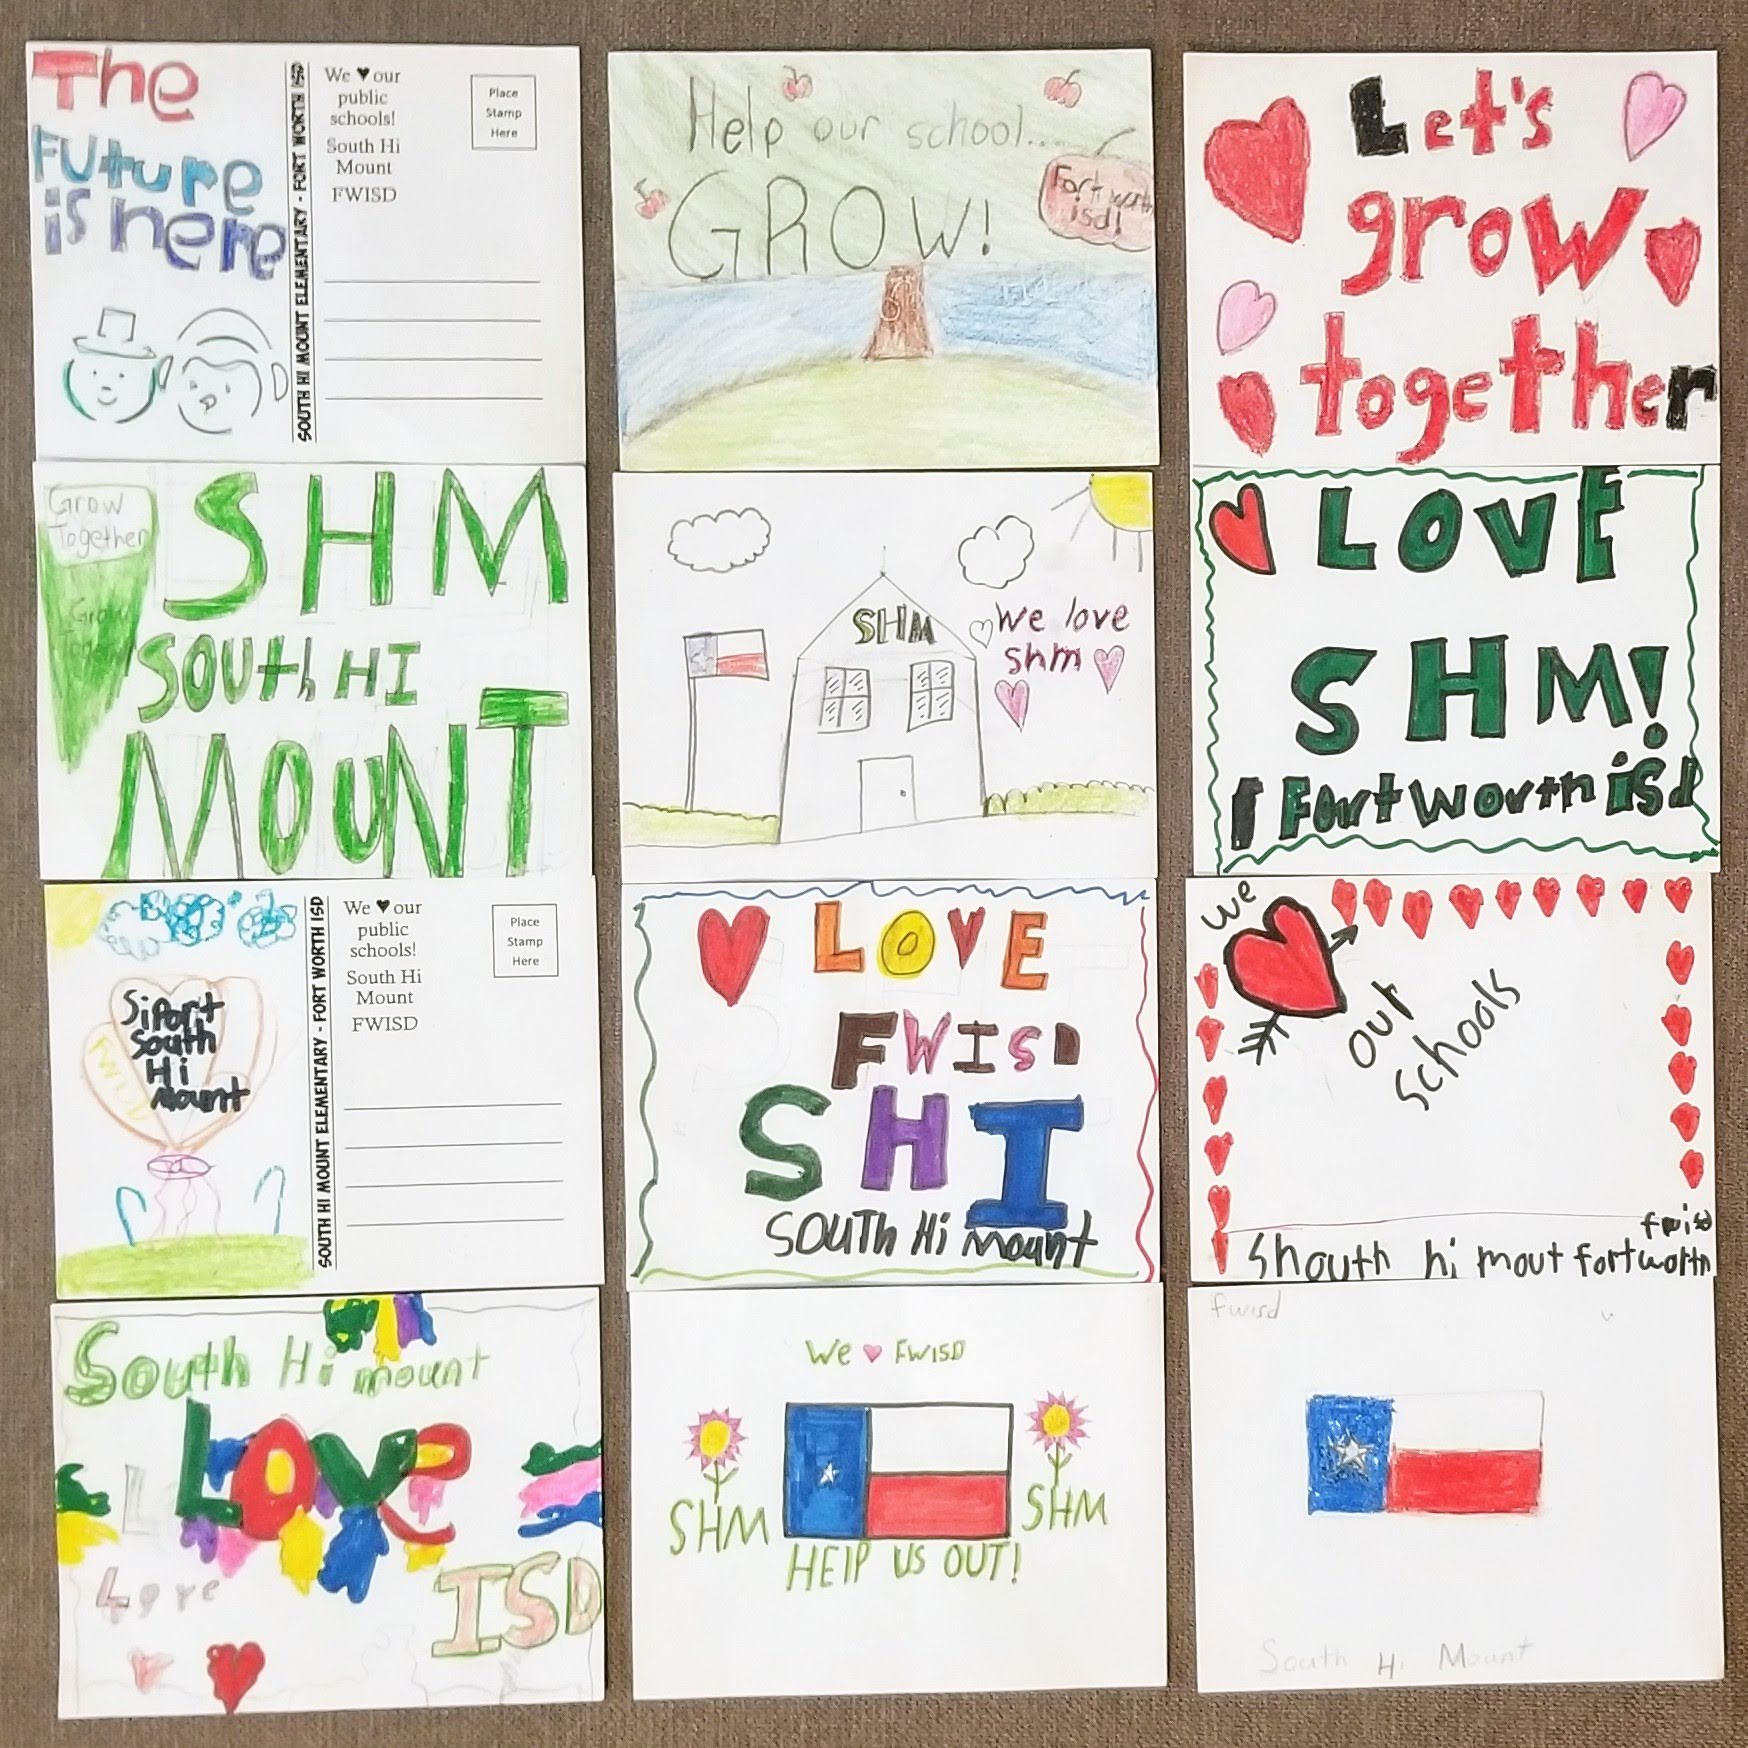 The
Future
is here
SOUTH HI MOUNT ELEMENTARY - FORT WORTH ISD
We ♥ our
public
schools!
South Hi
Mount
FWISD
Place
Stamp
Here
Help our school...
GROW!
Fort worth
isd!
Let's
grow
together
Grow
Together
Grow
SHM
SOUth HI
MOUNT
SHM
We love
shm
LOVE
SHM!
Fort worth isd
Siport
South
Hi
Mount
FWISD
SOUTH HI MOUNT ELEMENTARY - FORT WORTH ISD
We ♥ our
public
schools!
South Hi
Mount
FWISD
Place
Stamp
Here
LOVE
FWISD
SHI
SOUTH Hi mount
we
our
schools
fwisd
Shouth hi mout fortworth
South Hi mount
LOVE
Love
ISD
We ♥ FWISD
SHM
SHM
HElP US OUT!
fwisd
South Hi Mount